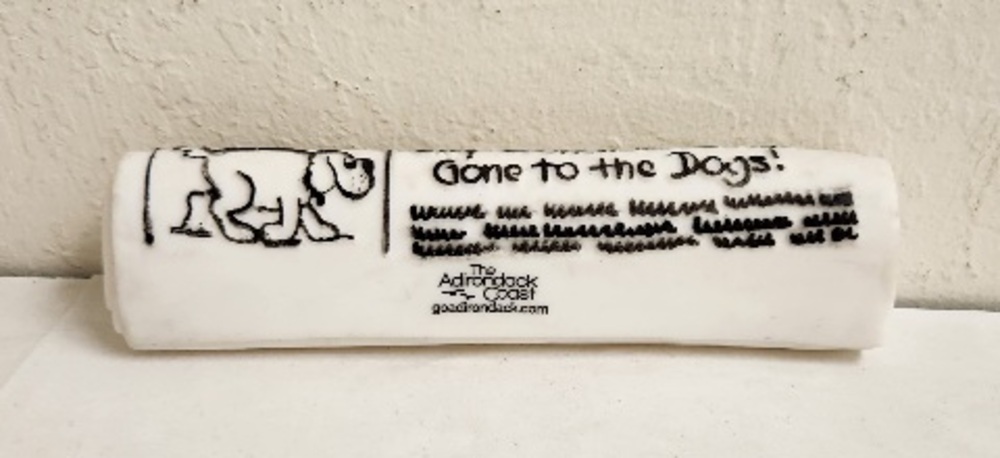 Gone to the Dogs!
The
Adirondack
Coast
goadirondack.com